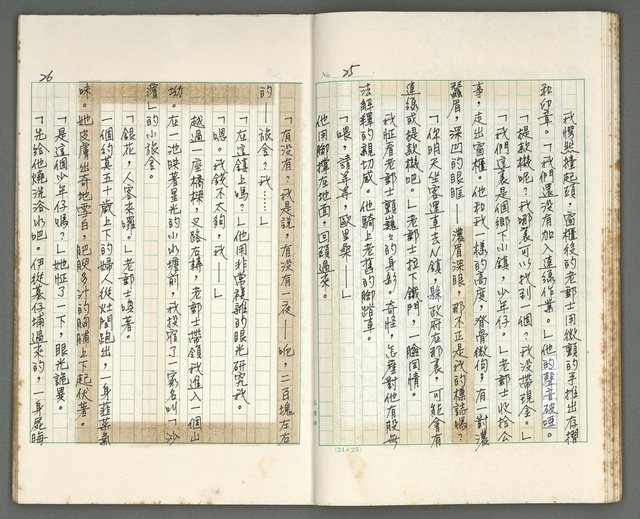 25
我慢點擡起頭，窗櫃後的老郵士用微顫的手推出存摺
和印章。「我們還沒有加入連線作業。」他的聲音破啞。
「提款機呢？我哪裏可以找到一個？我沒帶現金。」
「我們這裏是個鄉下小鎮，少年仔。」老郵士收拾公
事，走出窗櫃。他和我一樣的高度，脊骨微佝，有一對濃
蠶眉，深凹的眼眶——濃眉深眼，那不正是我的標誌嗎？
「你明天坐客運車去N鎮，縣政府在那裏，可能會有
連線或提款機吧。」老郵士拉下鐵門，一臉同情。
我怔看老郵士顫巍々的身影，奇怪，怎麼對他有股無
法解釋的親切感。他騎上老舊的腳踏車。
「喂，請等等，歐里桑——」
他用腳撐在地面，回頭過來。
(24×25)
26
「有沒有？我是說，有沒有一夜——呃，二百塊左右
的——旅舍？我……」
「在這鎮上嗎？」他用非常複雜的眼光研究我。
「嗯。我錢不太夠，我——」
越過一座橋樑，叉路右轉，老郵士帶領我進入一個山
坳。在一池映著星光的小水塘前，我投宿了一家名叫「沙
濱」的小旅舍。
「銀花，人客來囉。」老郵士喚著。
一個約莫五十歲上下的婦人從灶間跑出，一身韮菜氣
味。她皮膚出奇地雪白，肥腴多汁的胸脯上下起伏著。
「是這個少年仔嗎？」她怔了一下，眼光詭異。
「先給他燒洗浴水吧，伊從墓仔埔過來的，一身屍晦